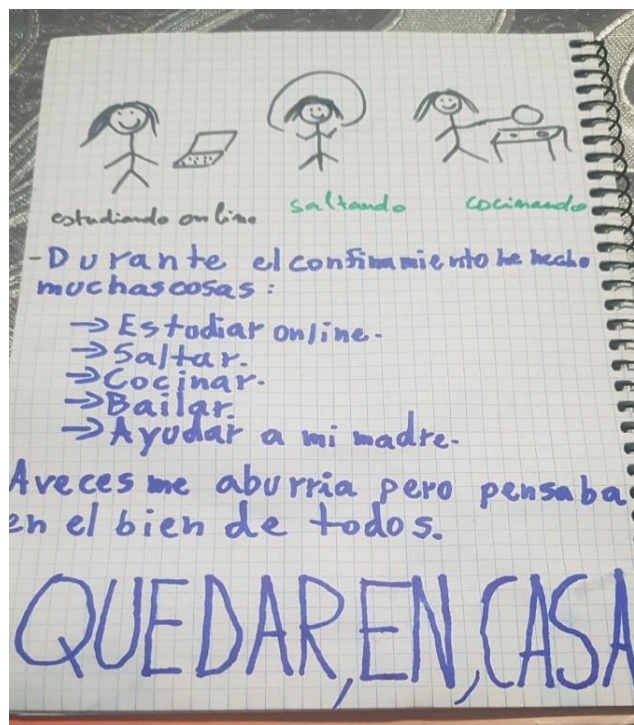 estudiando on line saltando cocinando
-Durante el confinamiento he hecho
muchas cosas:
→Estudiar online.
→Saltar.
→Cocinar.
→Bailar.
→Ayudar a mi madre.
Aveces me aburria pero pensaba
en el bien de todos.
QUEDAR,EN,CASA